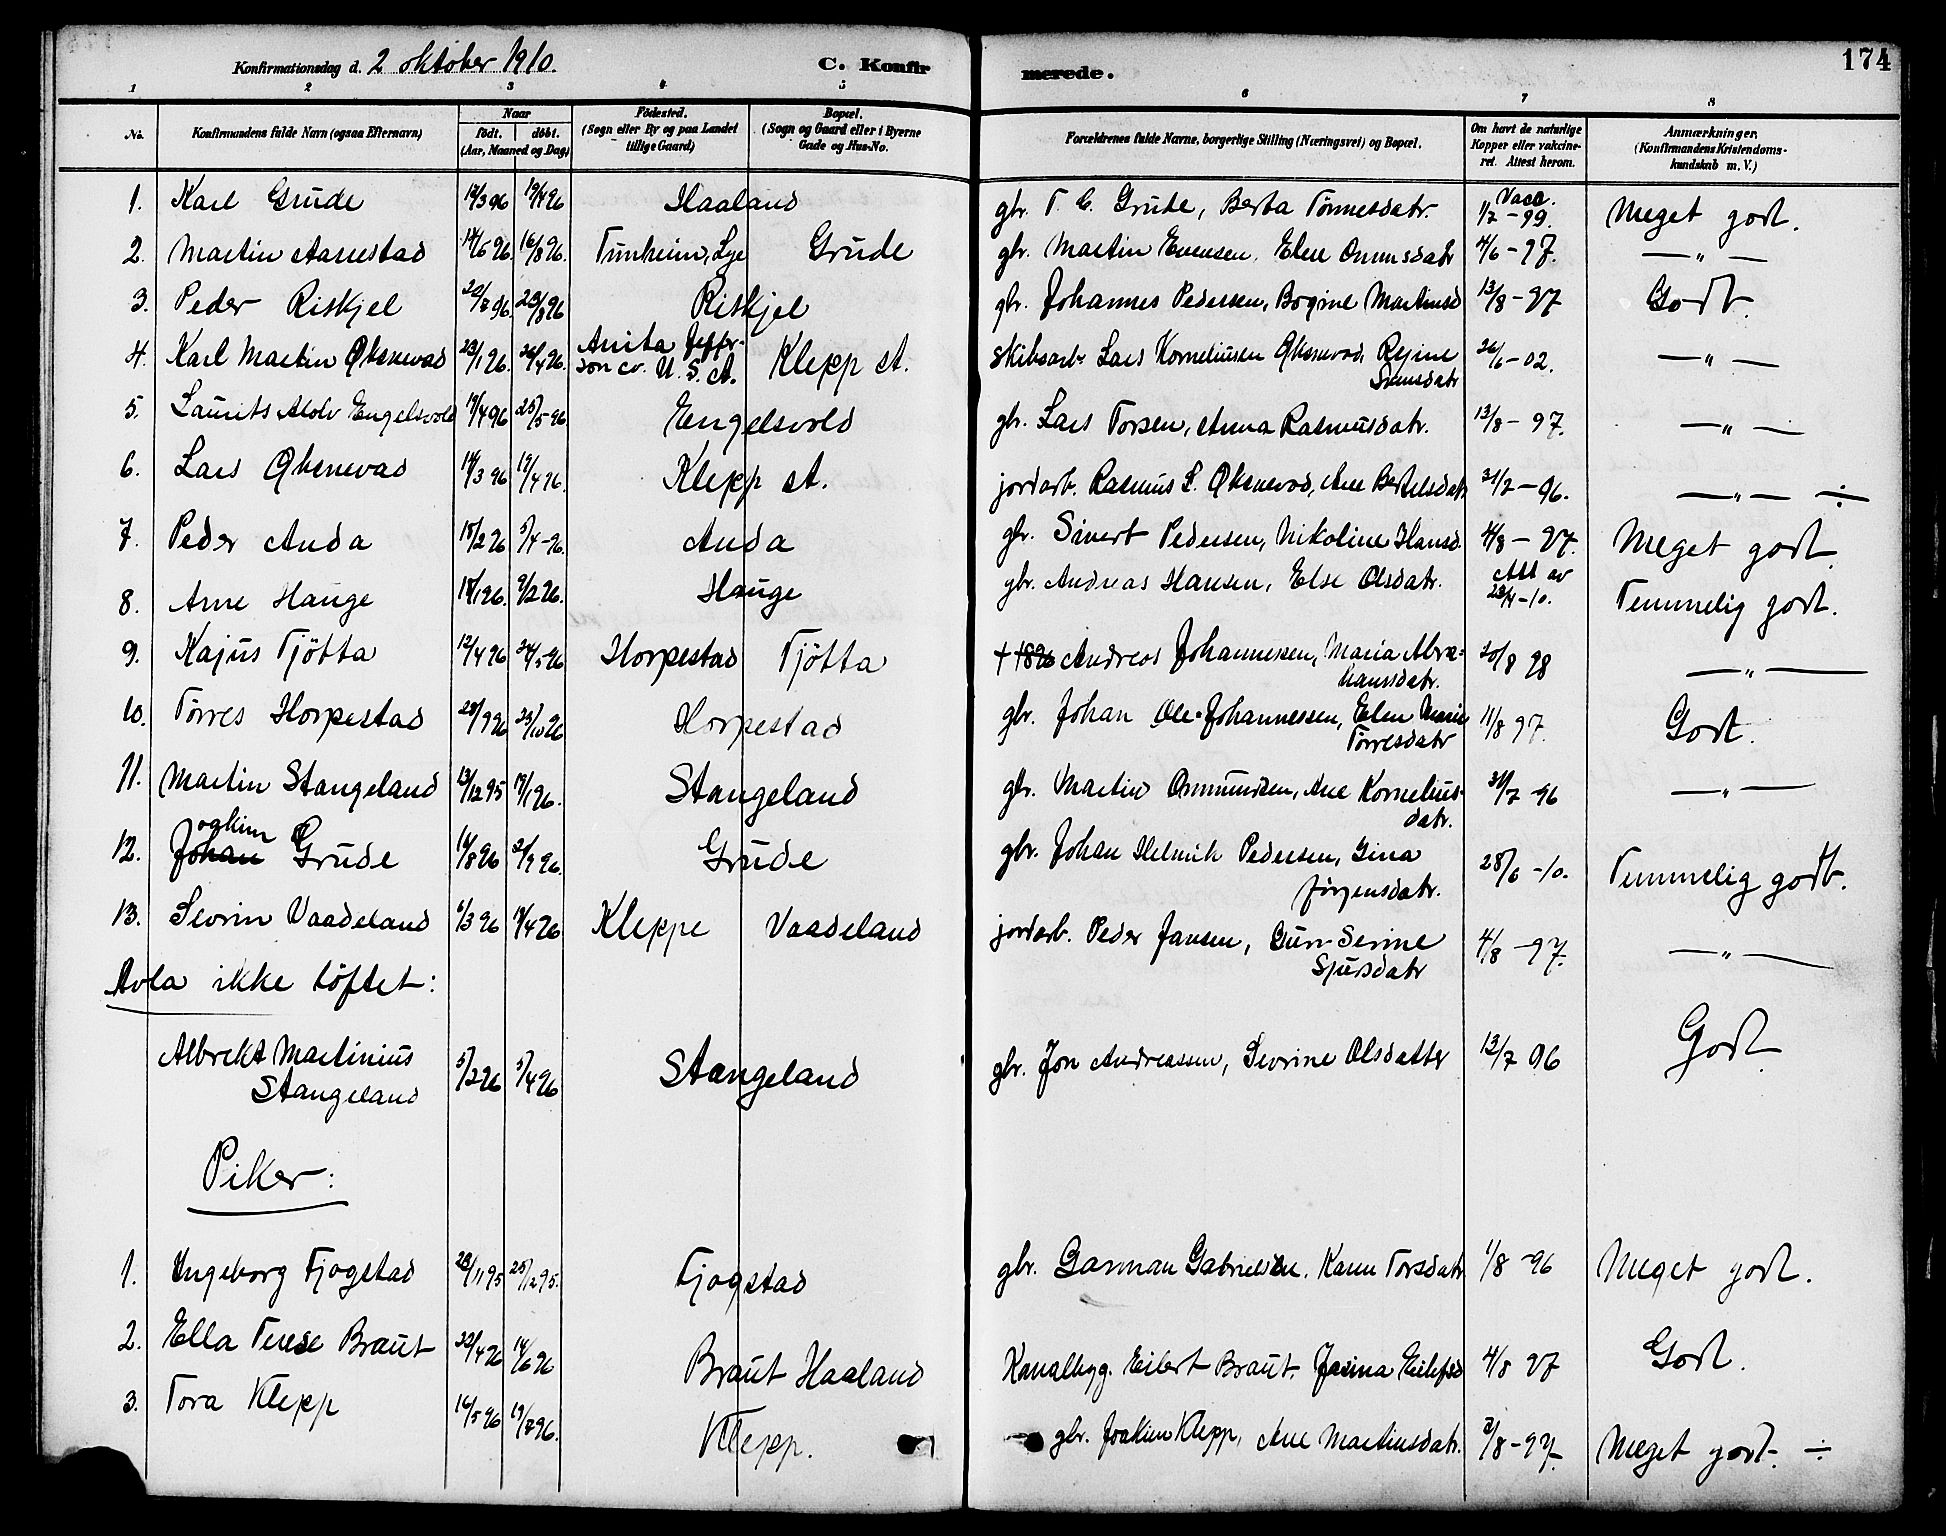 Konfirmationsdag d. 2 oktober 1910. C. Konfirmerede. 174
1 2 3 4 5 6 7 8
No. Konfirmandens fulde Navn (ogsaa Efternavn) Naar födt. döbt. (Aar, Maaned og Dag) Födested. (Sogn eller By og paa Landet tillige Gaard) Bopæl. (Sogn og Gaard eller i Byerne Gade og Hus-No. Forældrenes fulde Navne, borgerlige Stilling (Næringsvei) og Bopæl. Om havt de naturlige Kopper eller vakcineret. Attest herom. Anmærkninger. (Konfirmandens Kristendomskundskab m. V.)
1. Karl Grude 19/4 96 Haaland gbr. T. C. Grude, Berta Tönnesdatr. Vacc. 1/7-99. Meget godt.
2. Martin Aarrestad 14/5 96. 16/8 96. Tunheim, Lye Grude gbr. Martin Evensen, Elen Omunsdatr 4/6-97. —„—
3. Peder Riskjel 23/8 96 Riskjel gbr. Johannes Pedersen, Bogine Martinsd 13/8-97 Godt.
4. Karl Martin Øksnevad 23/1 96. 26/4 96. Anita Jefferson co. U. S. A. Klepp st. skibsarb. Lars Korneliusen Øksnevad, Regine Svensdatr 26/6-02. —„—
5. Laurits Alolv Engelsvold 19/4 96 25/5-96. Engelsvold gbr. Lars Torsen, Anna Rasmusdatr. 13/8-97. —„—
6. Lars Øksnevad 14/3 96 19/4 96. Klepp st. jordarb. Rasmus L. Øksnevad, Ane Bertelsdatr 31/7-96. —„— ÷
7. Peder Anda 18/2 96 5/4-96. Anda gbr. Sivert Pedersen, Nikoline Hansd. 4/8-97. Meget godt.
8. Arne Hauge 18/1 96. 9/2 96. Hauge gbr. Andreas Hansen, Else Olsdatr. Att av 28/4-10. Temmelig godt.
9. Kajus Tjötta 12/4 96 24/5-96 Horpestad Tjötta † 1896 Andreas Johannessen, Maria Abrahamsdatr. 20/8 98 —„—
10. Törres Horpestad 28/9 96 25/10 96 Horpestad gbr. Johan Ole Johannessen, Elen Marie Törresdatr 11/8 97. Godt.
11. Martin Stangeland 13/12 95 19/1 96. Stangeland gbr. Martin Ommundsen, Ane Korneliusdatr. 31/7-96 —„—
12. Johan Joakim Grude 16/8 96 Grude gbr. Johan Helmik Pedersen, Gina Jörgensdatr. 28/6-10. Temmelig godt.
13. Sevrin Vaadeland 6/3 96 19/4 96 Kleppe Vaadeland jordarb. Peder Jansen, Guri Serine Sjursdatr 4/8-97. —„—
Avla ikke löftet:
Albrekt Martinius Stangeland 5/2 96 5/4 96 Stangeland gbr. Jon Andreassen, Sevrine Olsdatter 13/7 96 Godt
Piker:
1. Ingeborg Fjogstad 23/11 95 25/12 95. Fjogstad gbr. Garman Gabrielsen, Karen Torsdatr 1/8-96 Meget godt.
2. Ella Terese Braut 22/4 96 14/6 96 Braut Haaland Kanalbyg. Eilert Braut, Jasina Eilefsd 4/8 97 Godt.
3. Tora Klepp 16/5 96 19/7 96. Klepp. gbr. Joakim Klepp, Ane Martinsdatr. 3/8-97. Meget godt. ÷